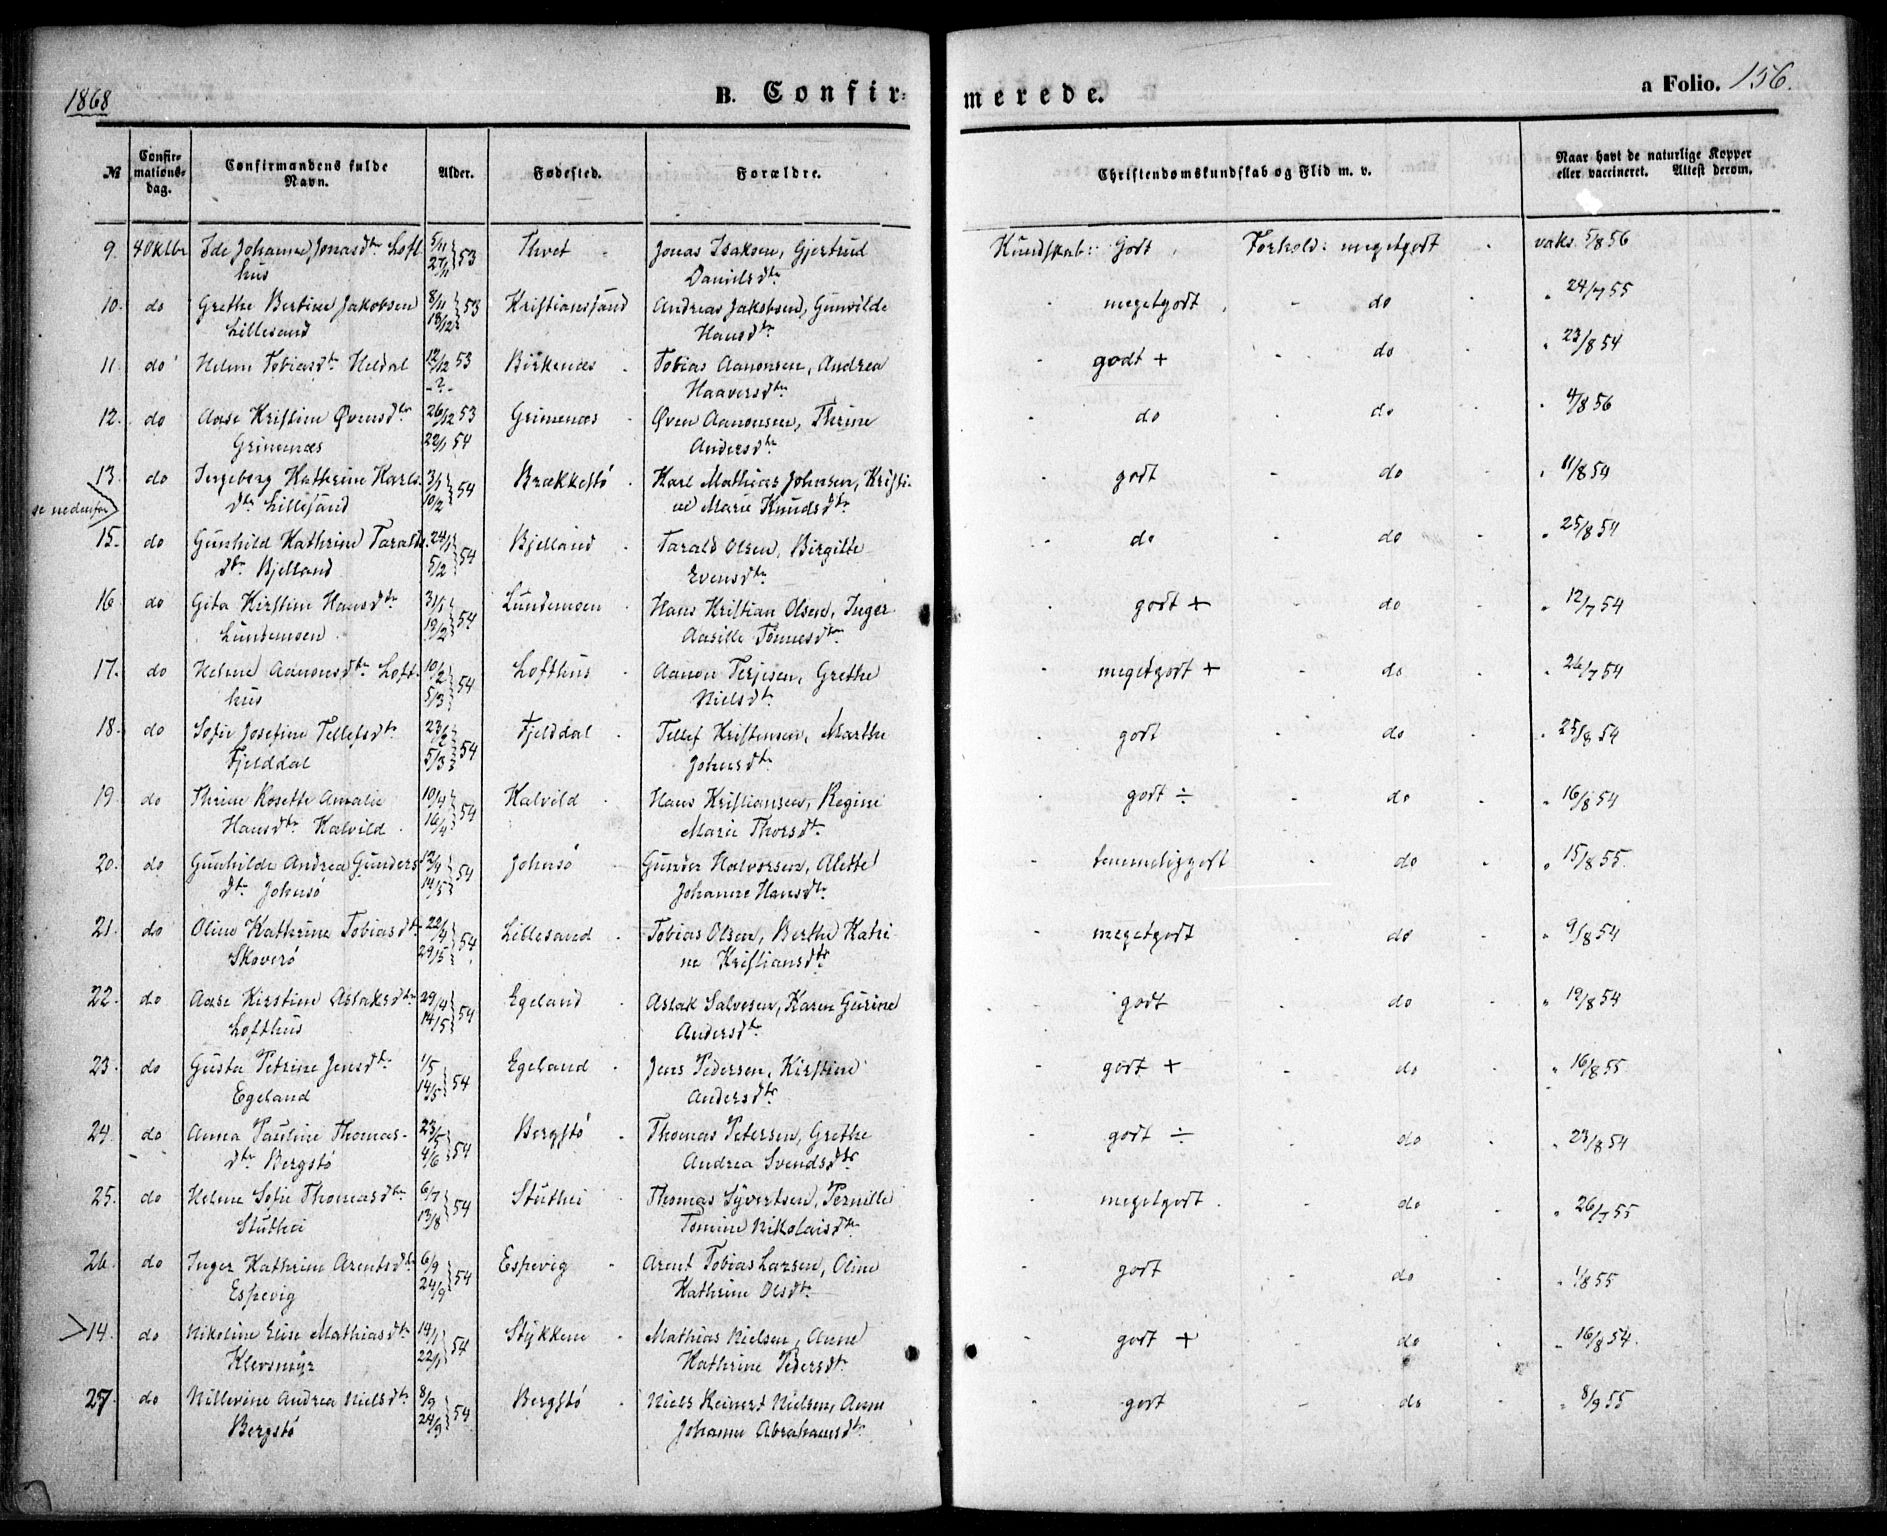 1868
B. Confir-
merede.
a Folio. 156.
№ Confir-mations-dag. Confirmandens fulde Navn. Alder. Fødested. Forældre. Christendomskundskab og Flid m. v. Naar havt de naturlige Kopper eller vaccineret. Attest derom.
9. 4 Oktbr Ide Johanne Jonasdtr Loft- 5/11 53 Thvet Jonas Isaksen, Gjertrud Kundskab: Godt, Forhold: megetgodt vaks. 5/8 56
hus 27/11 Danielsdtr
10. do Grethe Bertine Jakobsen 8/11 53 Kristianssand Andreas Jakobsen, Gunvilde megetgodt, do " 24/7 55
Lillesand 18/12 Hansdtr
11. do Helene Tobiasdtr Heldal 12/12 53 Birkenæs Tobias Aanonsen, Andrea godt + do " 23/8 54
-?- Haaversdtr
12. do Aase Kristine Øvensdtr 26/12 53 Grimenæs Øven Aanonsen, Thrine do do " 4/8 56
Grimenæs 22/1 54 Andersdtr
13. do Ingeborg Kathrine Karls- 3/1 54 Brækkestø Karl Mathias Johnsen, Kristi- godt do " 11/8 54
se nedenfor dtr Lillesand 10/2 ne Marie Knudsdtr
15. do Gunhild Kathrine Taralds- 24/1 54 Bjelland Tarald Olsen, Birgitte do do " 25/8 54
dtr Bjelland 5/2 Evensdtr
16 do Gita Kirstine Hansdtr 31/1 54 Lundemoen Hans Kristian Olsen, Inger godt + do " 12/7 54
Lundemoen 19/2 Aasille Tønnesdtr
17. do Helene Aanonsdtr Loft- 10/2 54 Lofthus Aanon Terjesen, Grethe megetgodt + do " 26/7 54
hus 5/3 Nielsdtr
18. do Sofie Josefine Tellefsdtr 54 Fjelddal Tellef Kristensen, Marthe godt do " 25/8 54
Fjelddal 5/3 Johnsdtr
19 do Thrine Rosette Amalie 10/4 54 Kalvild Hans Kristiansen, Regine godt ÷ do " 16/8 54
Hansdtr Kalvild 16/4 Marie Thorsdtr
20. do Gunhilde Andrea Gunders 12/4 54 Johnsø Gunder Halvorsen, Alette temmeliggodt do " 15/8 55.
dtr Johnsø 14/5 Johanne Hansdtr
21. do Oline Kathrine Tobiasdtr 22/4 54. Lillesand Tobias Olsen, Berthe Katri- megetgodt do " 9/8 54
Skoverø 29/5 ne Kristiansdtr
22. do Aase Kirstine Aslaksdtr 29/4 54 Egeland Aslak Salvesen, Karen Gurine godt do " 19/8 54
Lofthus 14/5 Andersdtr
23. do Gusta Petrine Jensdtr 1/5 54 Egeland Jens Pedersen, Kirstine godt + do " 16/8 55
Egeland 14/5 Andersdtr
24. do Anna Pauline Thomas- 23/5 54 Bergstø Thomas Petersen, Grethe godt ÷ do " 23/8 54
dtr Bergstø 4/6 Andrea Svendsdtr
25. do Helene Sofie Thomasdtr 6/7 54 Stuthei Thomas Syvertsen, Pernille megetgodt. do " 26/7 55
Stuthei 13/8 Tomine Nikolaisdtr
26. do Inger Kathrine Arentsdtr 6/9 54 Espevig Arent Tobias Larsen, Oline godt do " 1/8 55
Espevig 24/9 Kathrine Olsdtr
>14. do Nikoline Elise Mathiasdtr 14/1 54 Stykkene Mathias Nielsen, Anne godt + do " 16/8 54.
Klevsmyr 22/1 Kathrine Pedersdtr
27 do Nillevine Andrea Nielsdtr 8/9 54 Bergstø Niels Reinert Nielsen, Anne godt do " 8/9 55
Bergstø 24/9 Johanne Abrahamsdtr